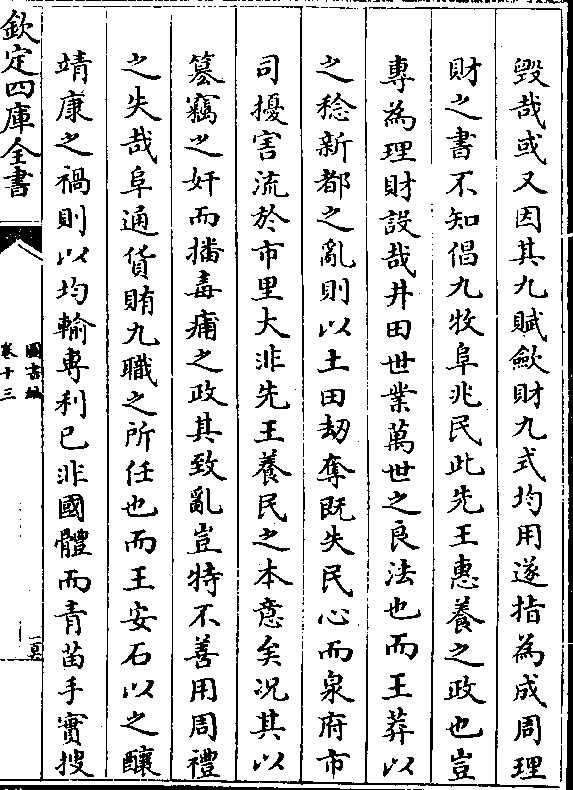 毁哉或又因其九賦斂財九式均用遂指為成周理
財之書不知倡九牧阜兆民此先王惠養之政也豈
專為理財設哉井田世業萬世之良法也而王莽以
之稔新都之亂則以土田刼奪既失民心而泉府市
司擾害流於市里大非先王養民之本意矣况其以
簒竊之奸而播毒痡之政其致亂豈特不善用周禮
之失哉阜通貨賄九職之所任也而王安石以之釀
靖康之禍則以均輸專利已非國體而青苗手實搜
欽定四庫全書
圖書編
卷十三